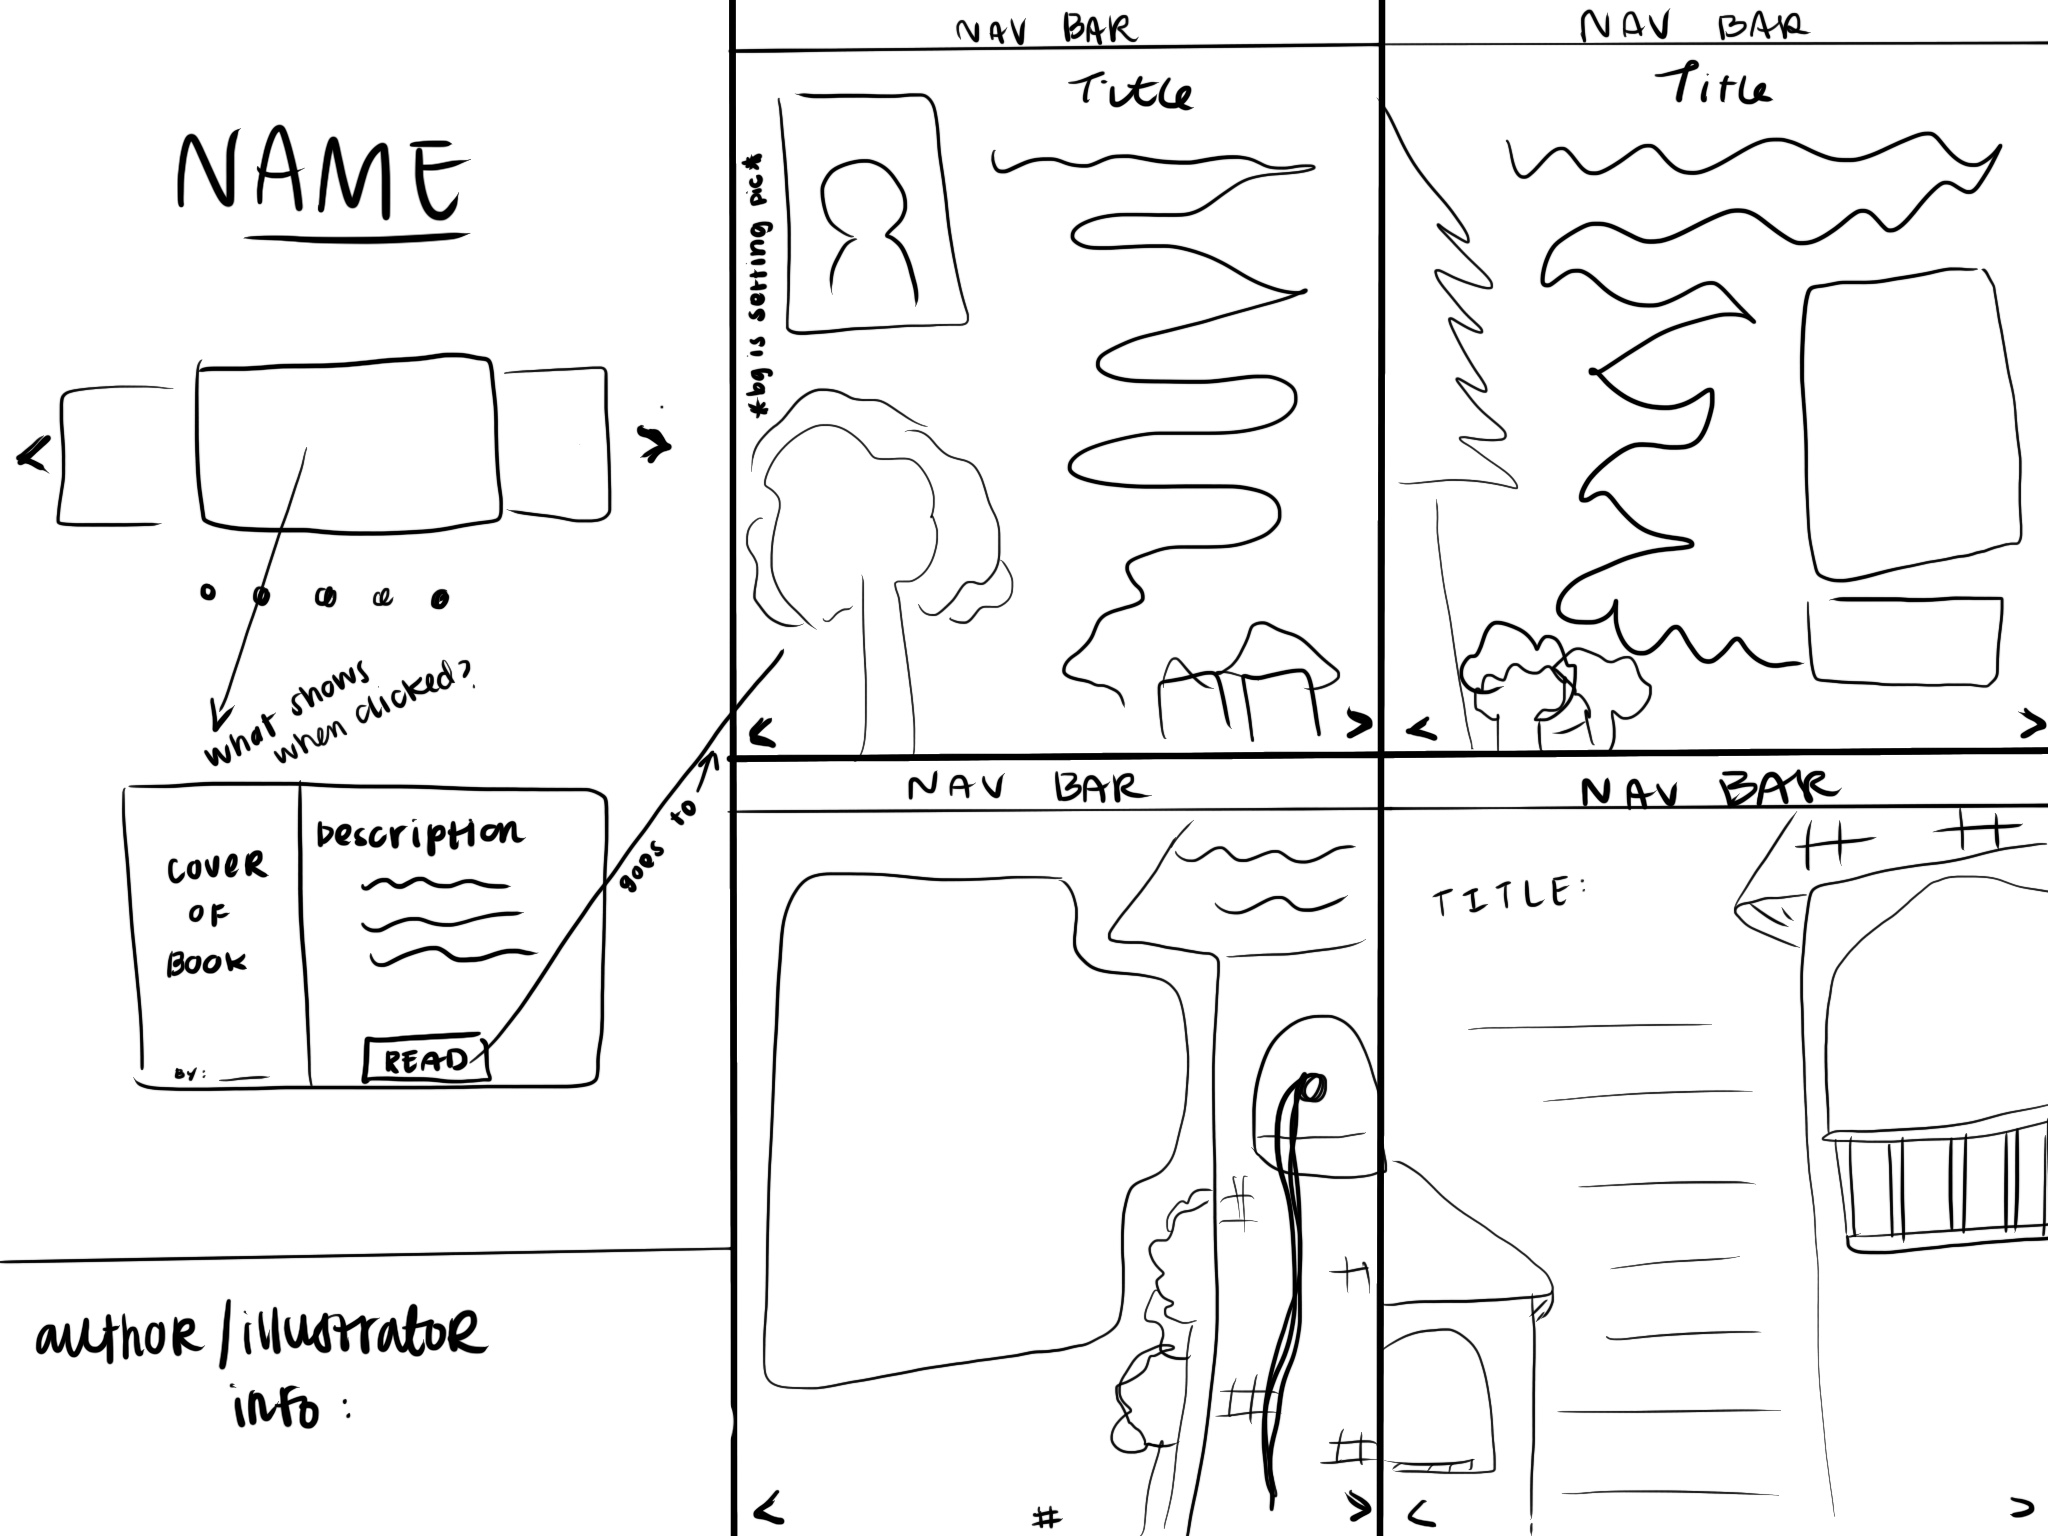 NAME
<
>
what shows
when clicked?
COVER
OF
BOOK
BY:
Description
READ
goes to
author/illustrator
info:
NAV BAR
Title
*bg is setting pic*
<
>
NAV BAR
Title
<
>
NAV BAR
<
#
>
NAV BAR
TITLE:
<
>